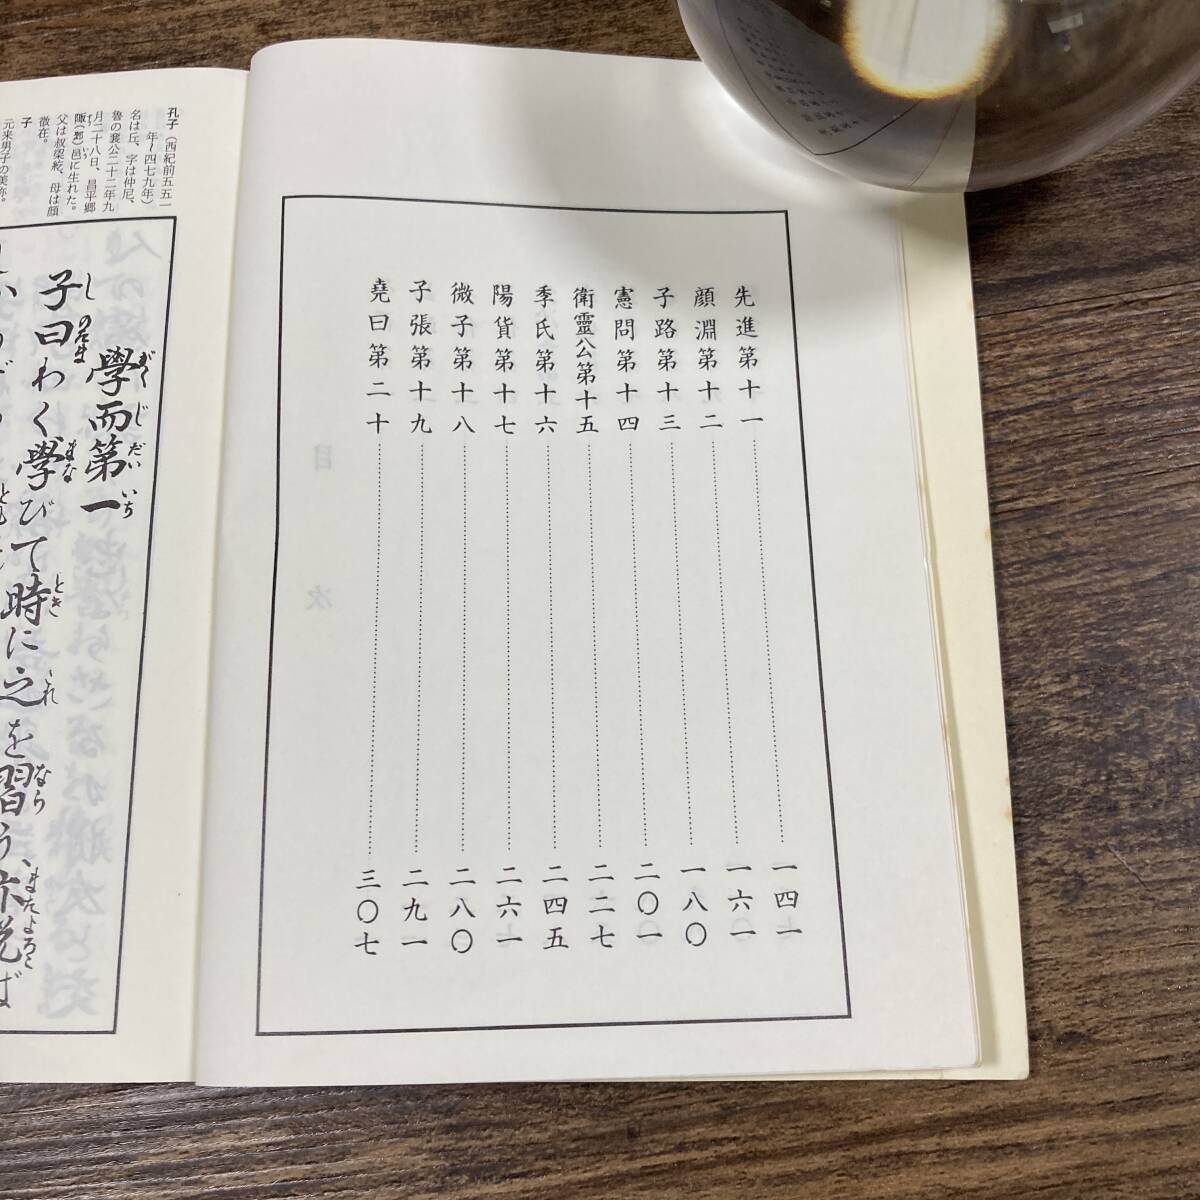 先進第十一……一四一
顔淵第十二……一六一
子路第十三……一八〇
憲問第十四……二〇一
衛靈公第十五……二二七
季氏第十六……二四五
陽貨第十七……二六一
微子第十八……二八〇
子張第十九……二九一
堯曰第二十……三〇七
孔子(西紀前五五一
年〜四七九年)
名は丘、字は仲尼、
魯の襄公二十二年九
月二十八日、昌平郷
陬(鄹)邑に生れた。
父は叔梁紇、母は顔
徴在。
子
元来男子の美称。
學而第一
子曰わく學びて
時に之を習う、亦説ば